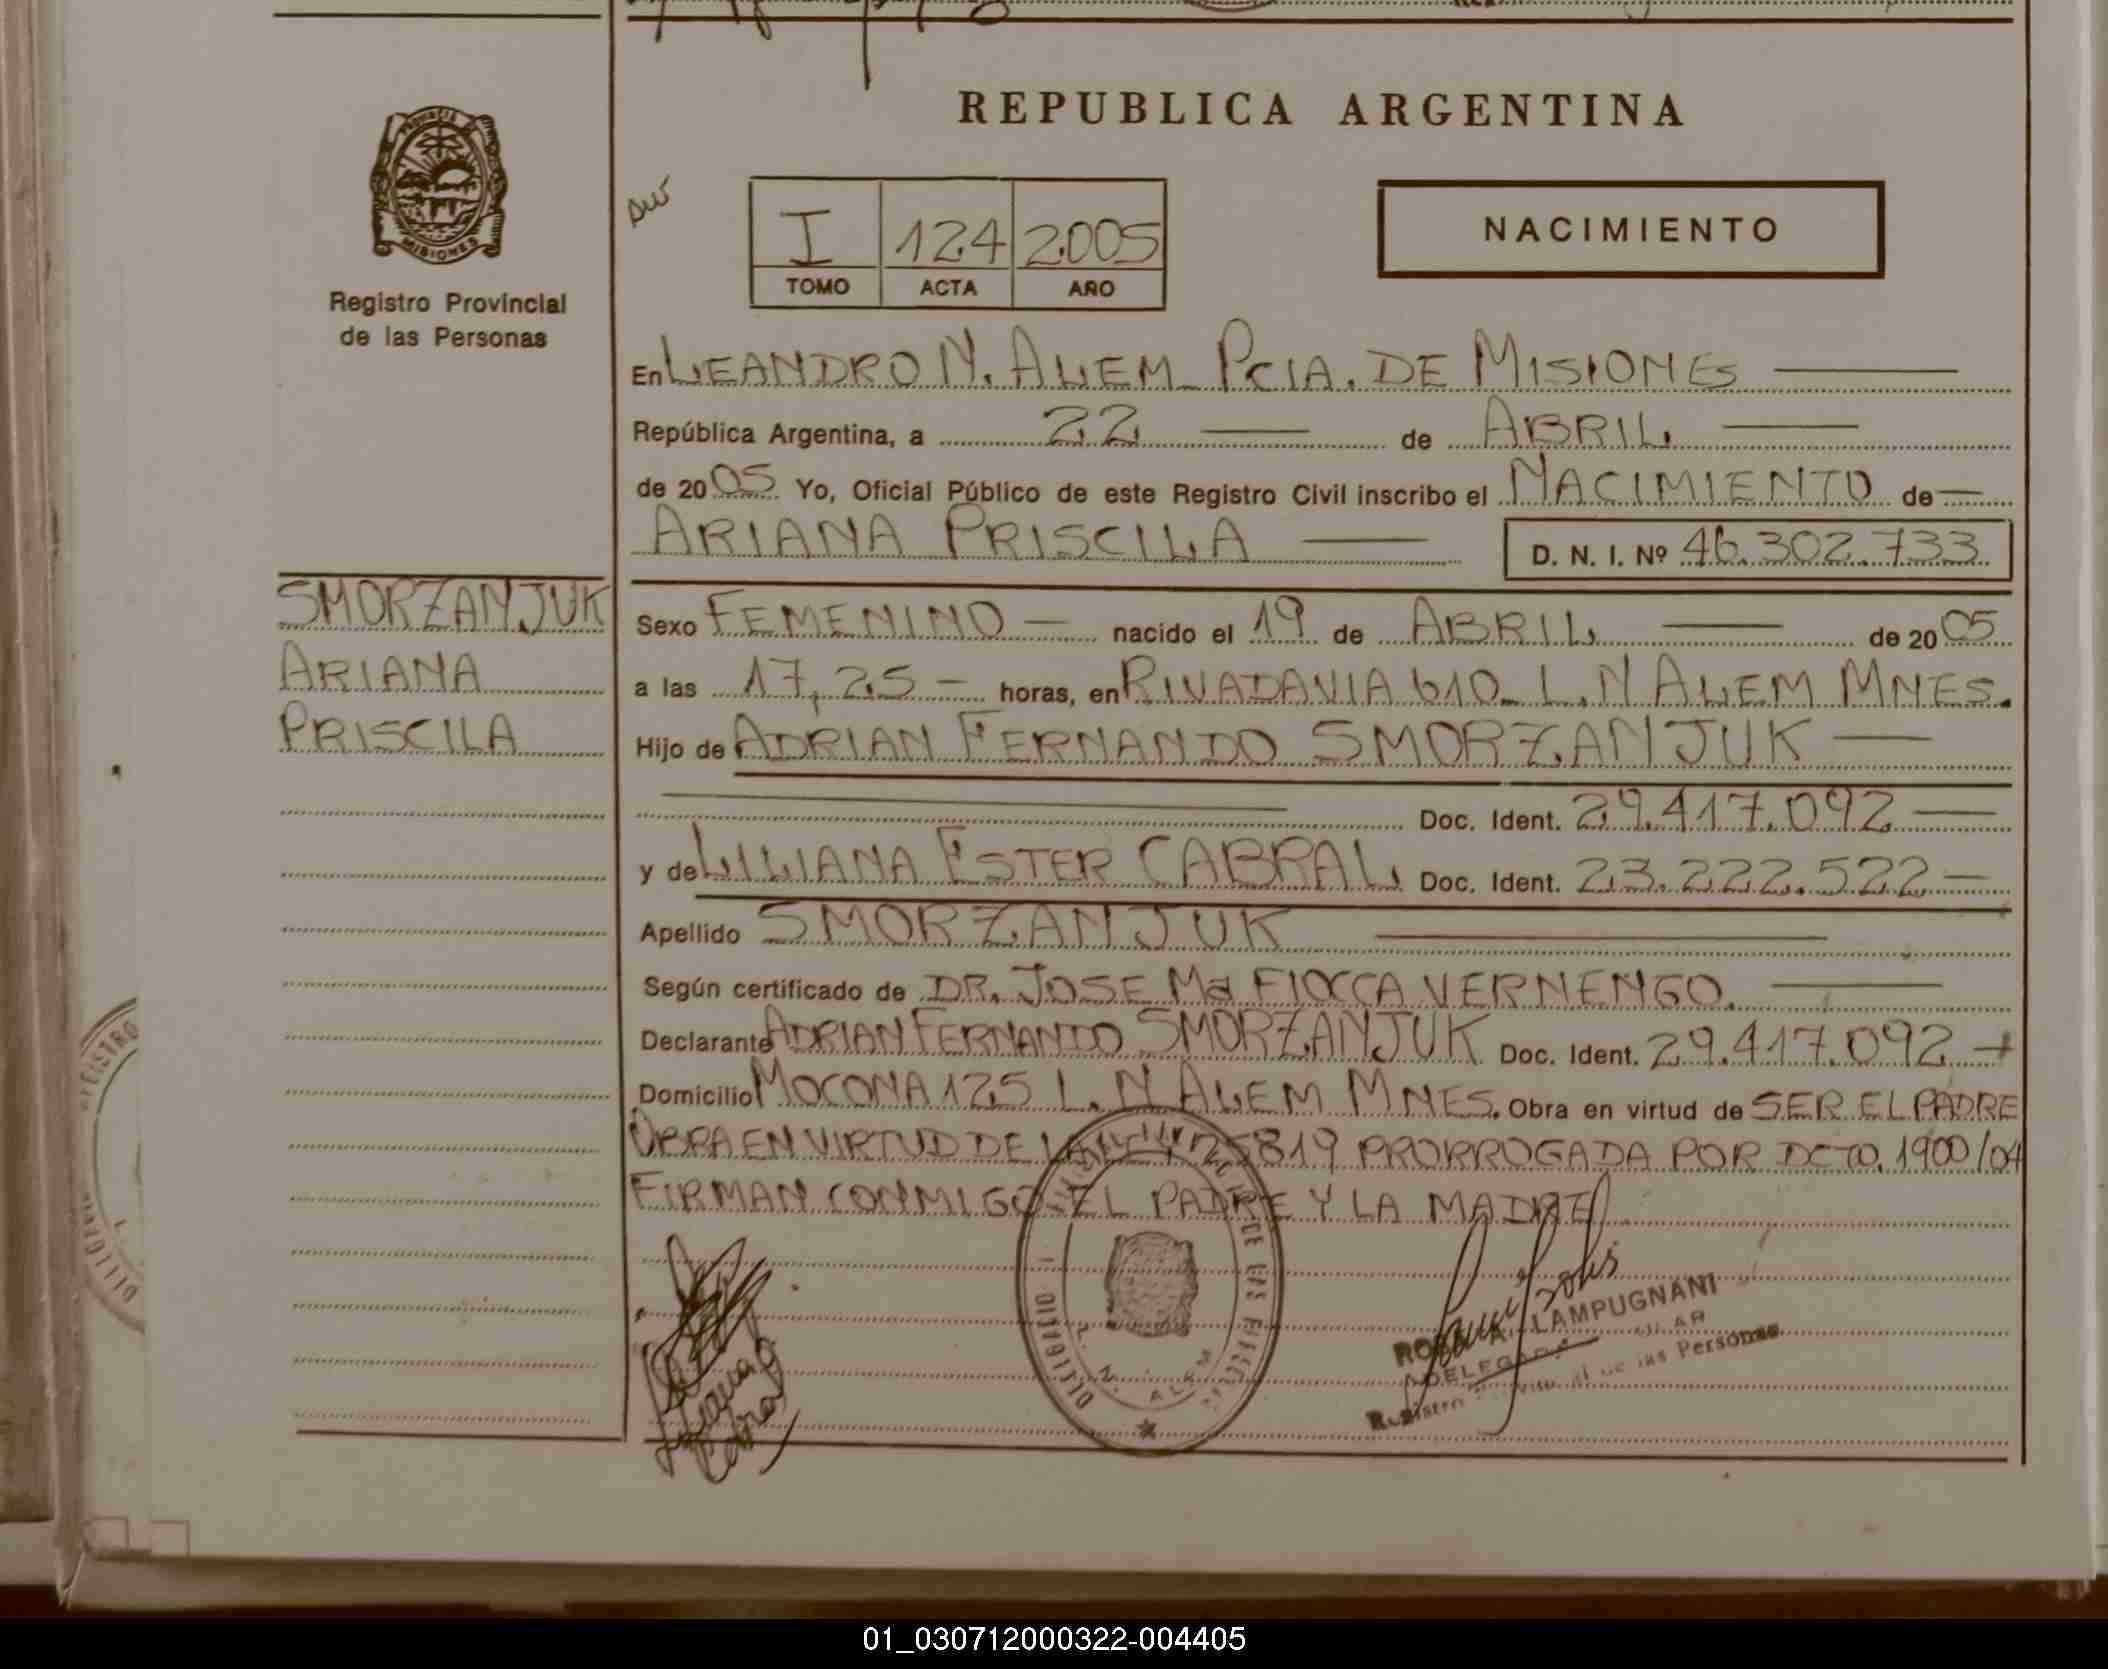 REPUBLICA ARGENTINA
PROVINCIA DE
MISIONES
Registro Provincial
de las Personas
I 124 2005
TOMO ACTA AÑO
NACIMIENTO
En LEANDRO N. ALEM PCIA. DE MISIONES
República Argentina, a 22 de ABRIL
de 2005 Yo, Oficial Público de este Registro Civil inscribo el NACIMIENTO de
ARIANA PRISCILA D. N. I. Nº 46.302.733
SMORZANJUK
ARIANA
PRISCILA
Sexo FEMENINO nacido el 19 de ABRIL de 2005
a las 17,25 horas, en RIVADAVIA 610 L.N ALEM MNES.
Hijo de ADRIAN FERNANDO SMORZANJUK
Doc. Ident. 29.417.092
y de LILIANA ESTER CABRAL Doc. Ident. 23.222.522
Apellido SMORZANJUK
Según certificado de DR. JOSE Mª FIOCCA VERNENGO.
Declarante ADRIAN FERNANDO SMORZANJUK Doc. Ident. 29.417.092
Domicilio MOCONA 125 L.N ALEM MNES. Obra en virtud de SER EL PADRE
OBRA EN VIRTUD DE LA LEY 25819 PRORROGADA POR DCTO. 1900/04
FIRMAN CONMIGO EL PADRE Y LA MADRE
Liliana
Cabral
DE LAS
L. N. ALEM
LAMPUGNANI
DELEGADA
Registro de las Personas
REGISTRO
01_030712000322-004405